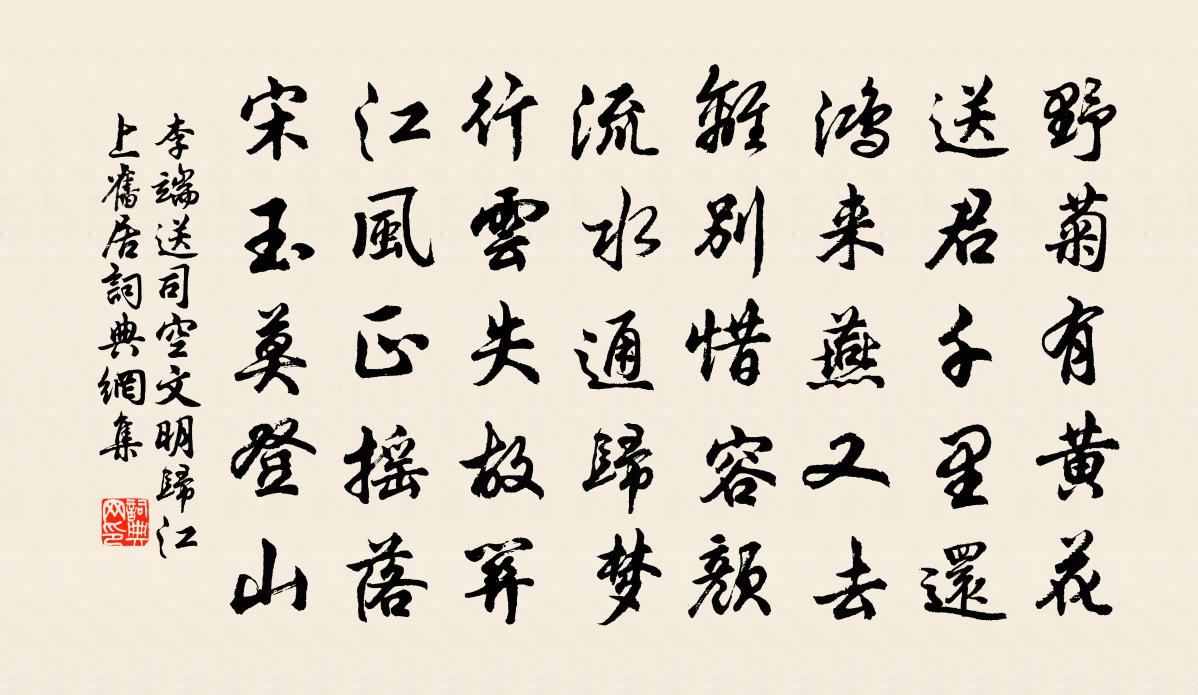 野菊有黄花
送君千里還
鴻来燕又去
離别惜容顔
流水通歸梦
行雲失故関
江風正摇落
宋玉莫登山
李端送司空文明歸江
上舊居詞典網集
詞典
网印